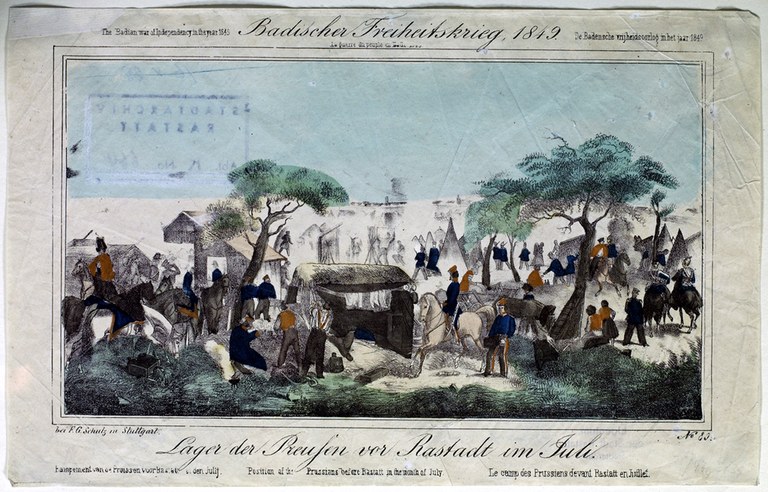 The Badian war of Independency in the year 1849
Badischer Freiheitskrieg, 1849.
De Badensche vrijheidsoorlog in het jaar 1849
La guerre du peuple
STADTARCHIV
RASTATT
bei F. G. Schulz in Stuttgart.
Nº 25.
Lager der Preußen vor Rastadt im Juli.
den Julij.
Position of the Prussians before Rastatt in the month of July.
Le camp des Prussiens devant Rastatt en Juillet.